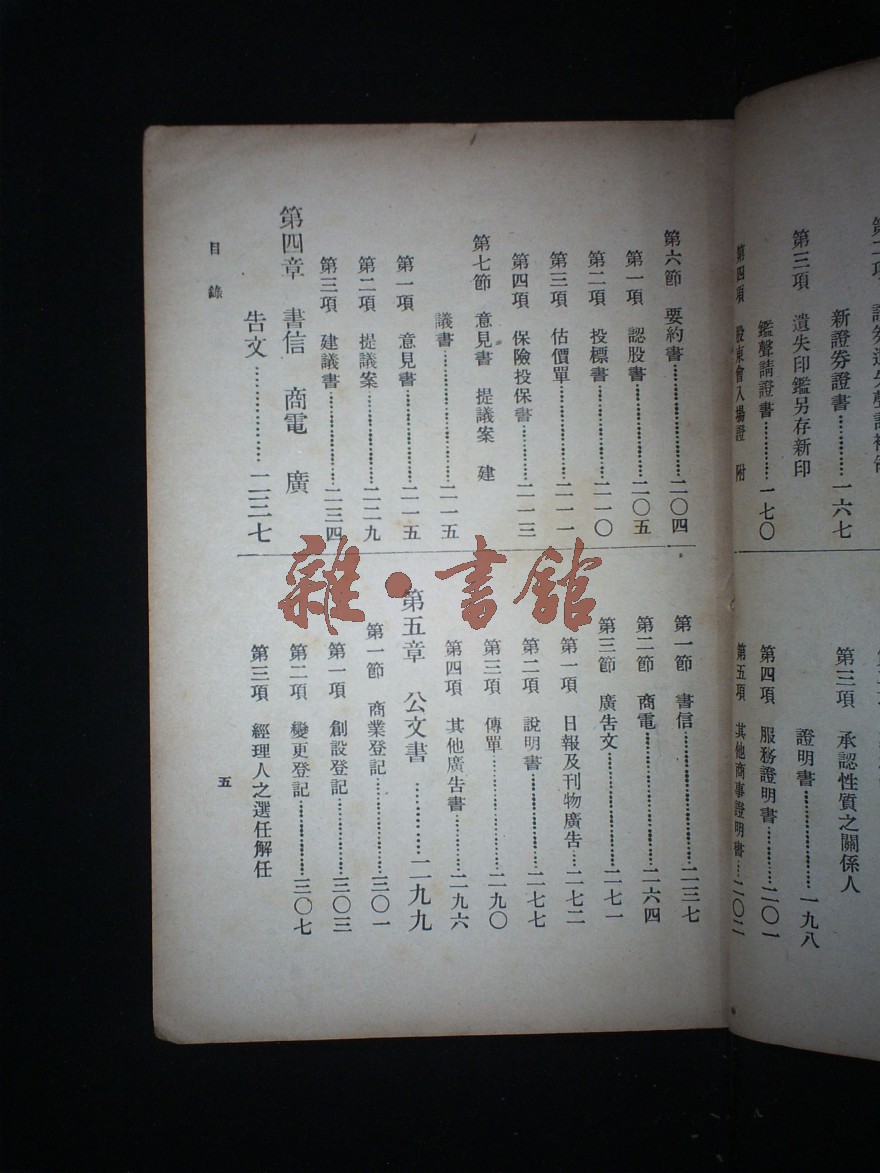 新證券證書…………一六七
第三項　遺失印鑑另存新印
鑑聲請證書…………一七〇
第四項　股東會入場證　附
第三項　承認性質之關係人
證明書…………一九八
第四項　服務證明書…………二〇一
第五項　其他商事證明書……二〇二
第六節　要約書…………二〇四
第一項　認股書…………二〇五
第二項　投標書…………二一〇
第三項　估價單…………二一一
第四項　保險投保書…………二一三
第七節　意見書　提議案　建
議書…………二一五
第一項　意見書…………二一五
第二項　提議案…………二二九
第三項　建議書…………二三四
第四章　書信　商電　廣
告文…………二三七
第一節　書信…………二三七
第二節　商電…………二六四
第三節　廣告文…………二七一
第一項　日報及刊物廣告…二七二
第二項　說明書…………二七七
第三項　傳單…………二九〇
第四項　其他廣告書…………二九六
第五章　公文書…………二九九
第一節　商業登記…………三〇一
第一項　創設登記…………三〇三
第二項　變更登記…………三〇七
第三項　經理人之選任解任
目錄
五
雜·書館